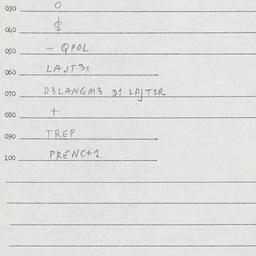 030 O
040 $
050 - QPOL
060 LAJT3R
070 D3LANGM3 D: LAJT3R
080 +
090 TREP
100 PRENC+1